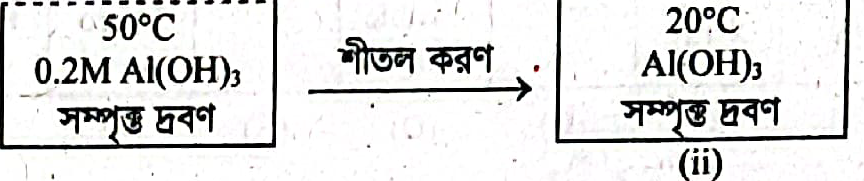 50°C
0.2M Al(OH)₃
সম্পৃক্ত দ্রবণ
শীতল করণ
20°C
Al(OH)₃
সম্পৃক্ত দ্রবণ
(ii)